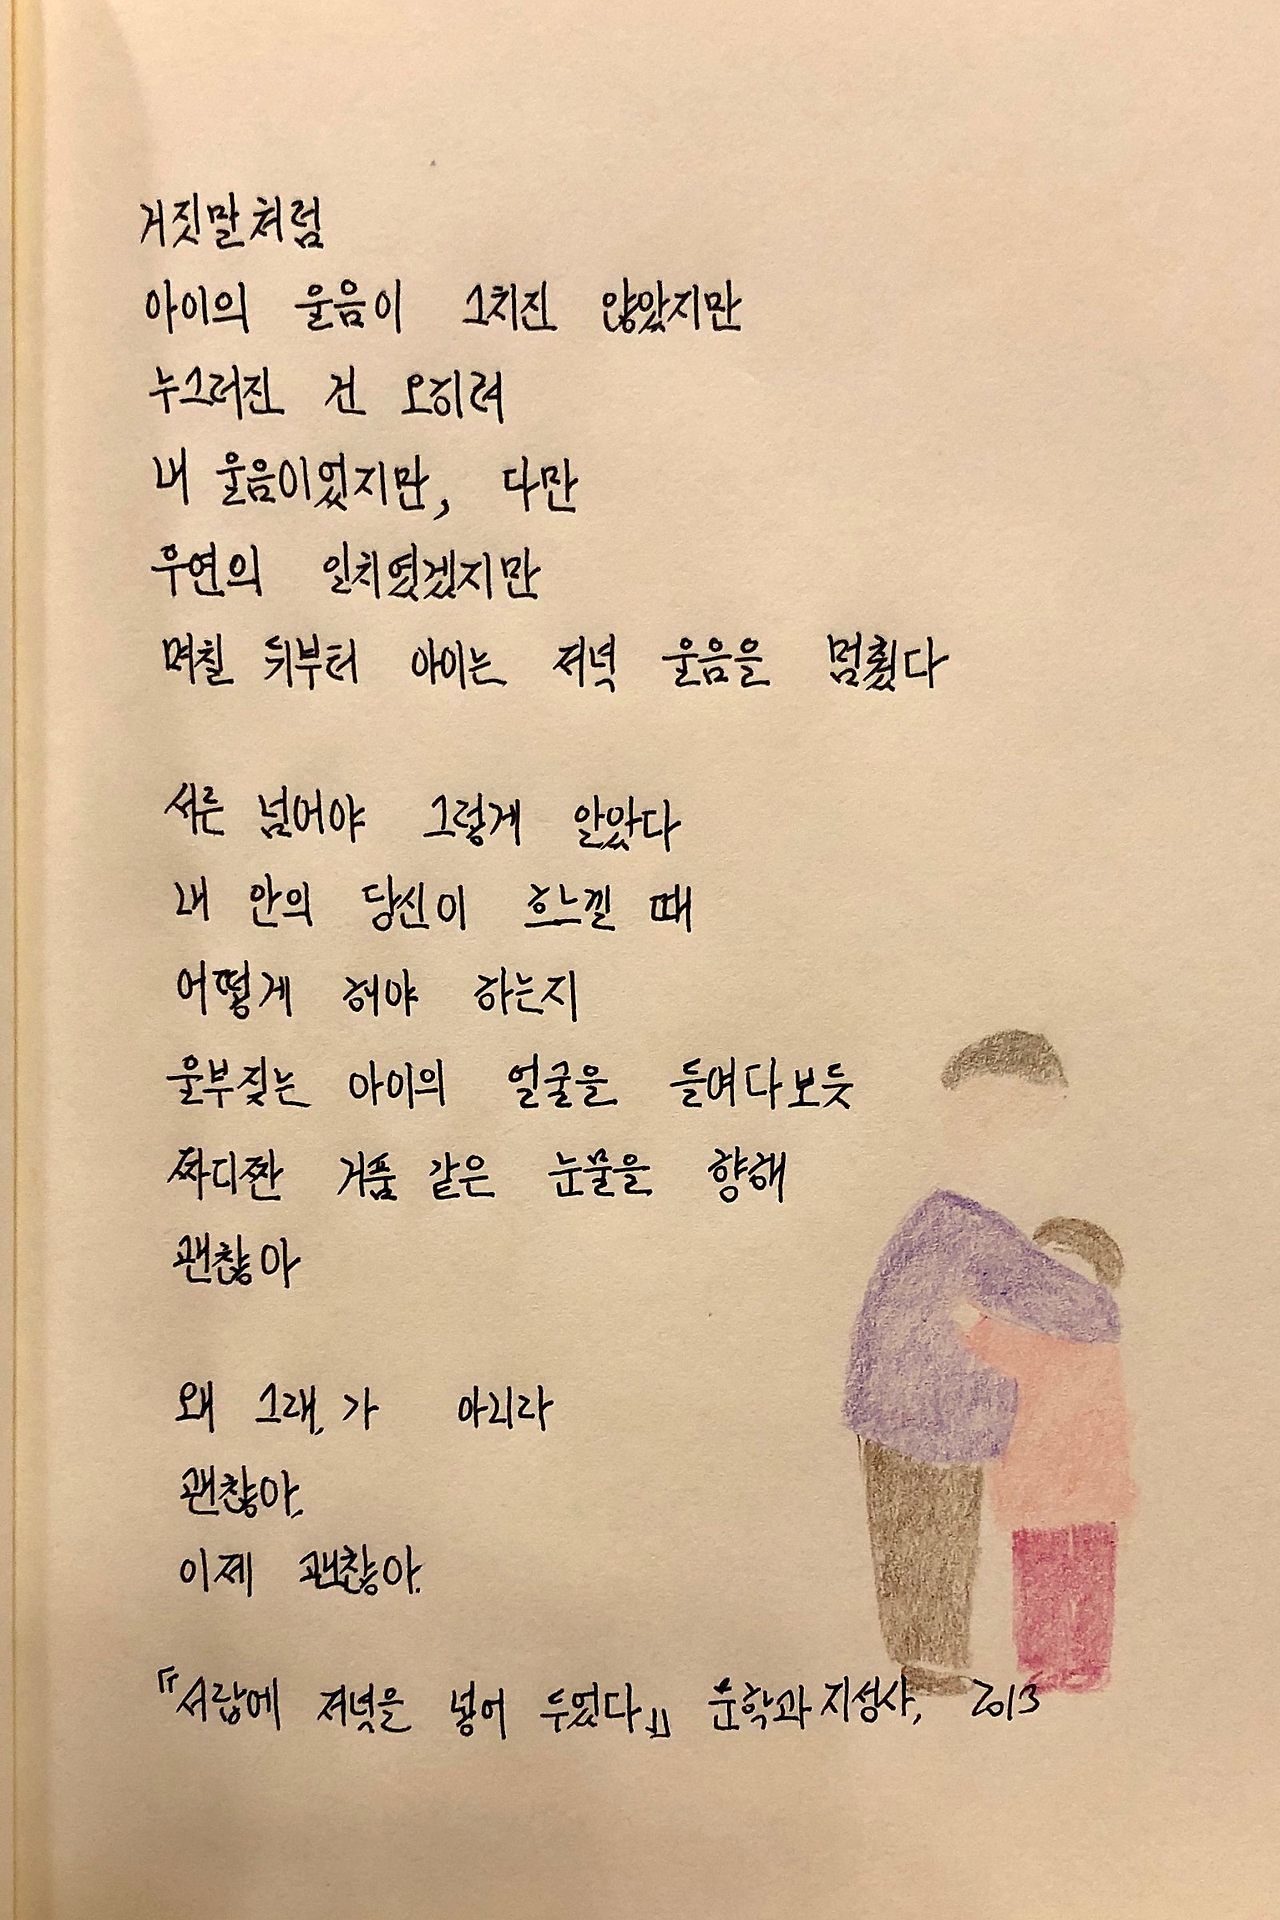 거짓말처럼
아이의 울음이 그치진 않았지만
누그러진 건 오히려
내 울음이었지만, 다만
우연의 일치였겠지만
며칠 뒤부터 아이는 저녁 울음을 멈췄다
서른 넘어야 그렇게 알았다
내 안의 당신이 흐느낄 때
어떻게 해야 하는지
울부짖는 아이의 얼굴을 들여다보듯
짜디짠 거품 같은 눈물을 향해
괜찮아
왜 그래, 가 아니라
괜찮아.
이제 괜찮아.
『서랍에 저녁을 넣어 두었다』 문학과지성사, 2013